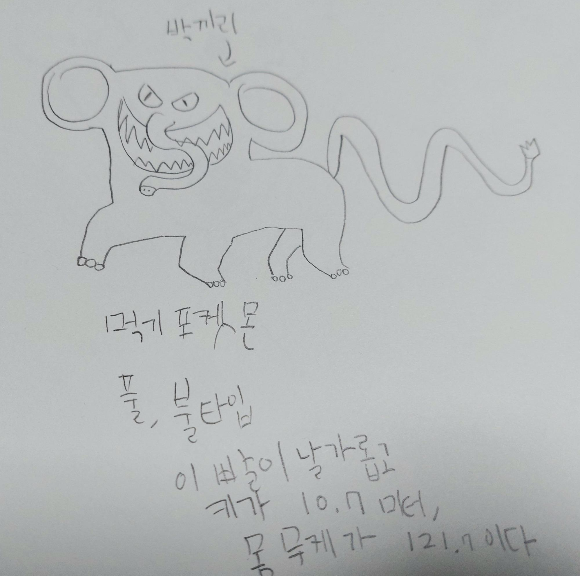 박끼리
먹기 포켓몬
풀, 불타입
이빨이 날가롭고
키가 10.7 미터,
몸무게가 121.7이다